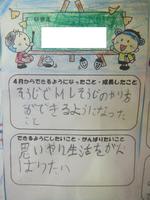 4月からできるようになったこと・成長したこと
そうじでMLそうじのやり方
ができるようになった
こと
できるようにしたいこと・がんばりたいこと
思いやり生活をがん
ばりたい